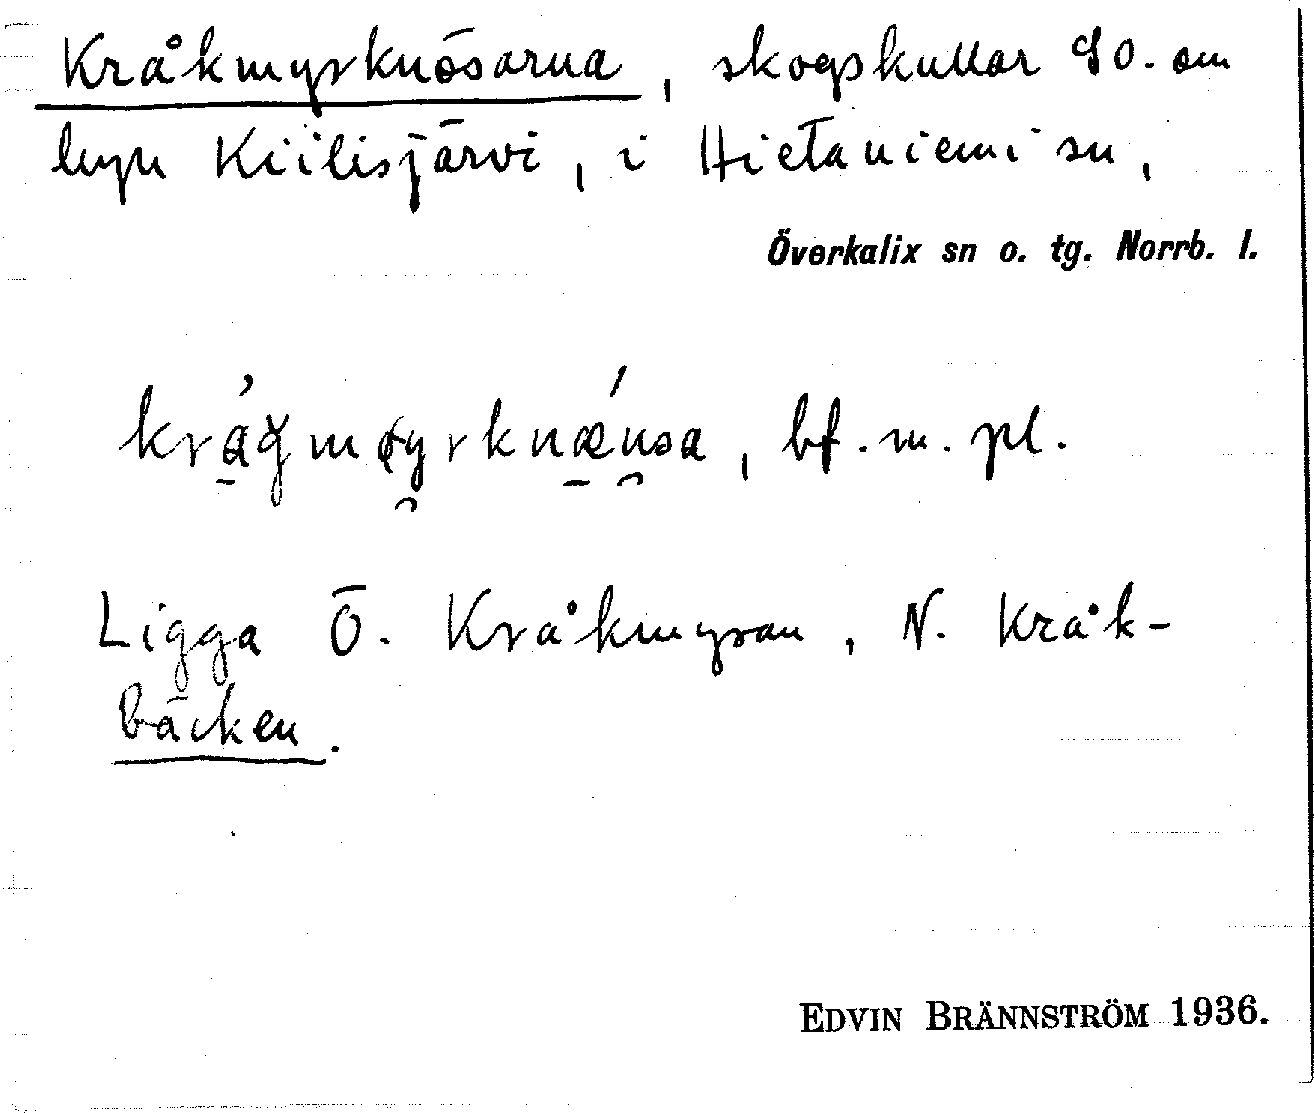 Kråkmyrknösarna, skogskullar SO. om
byn Kiilisjärvi, i Hietaniemi sn,
Överkalix sn o. tg. Norrb. l.
bf. m. pl.
Ligga Ö. Kråkmyran, N. Kråk-
bäcken.
EDVIN BRÄNNSTRÖM 1936.